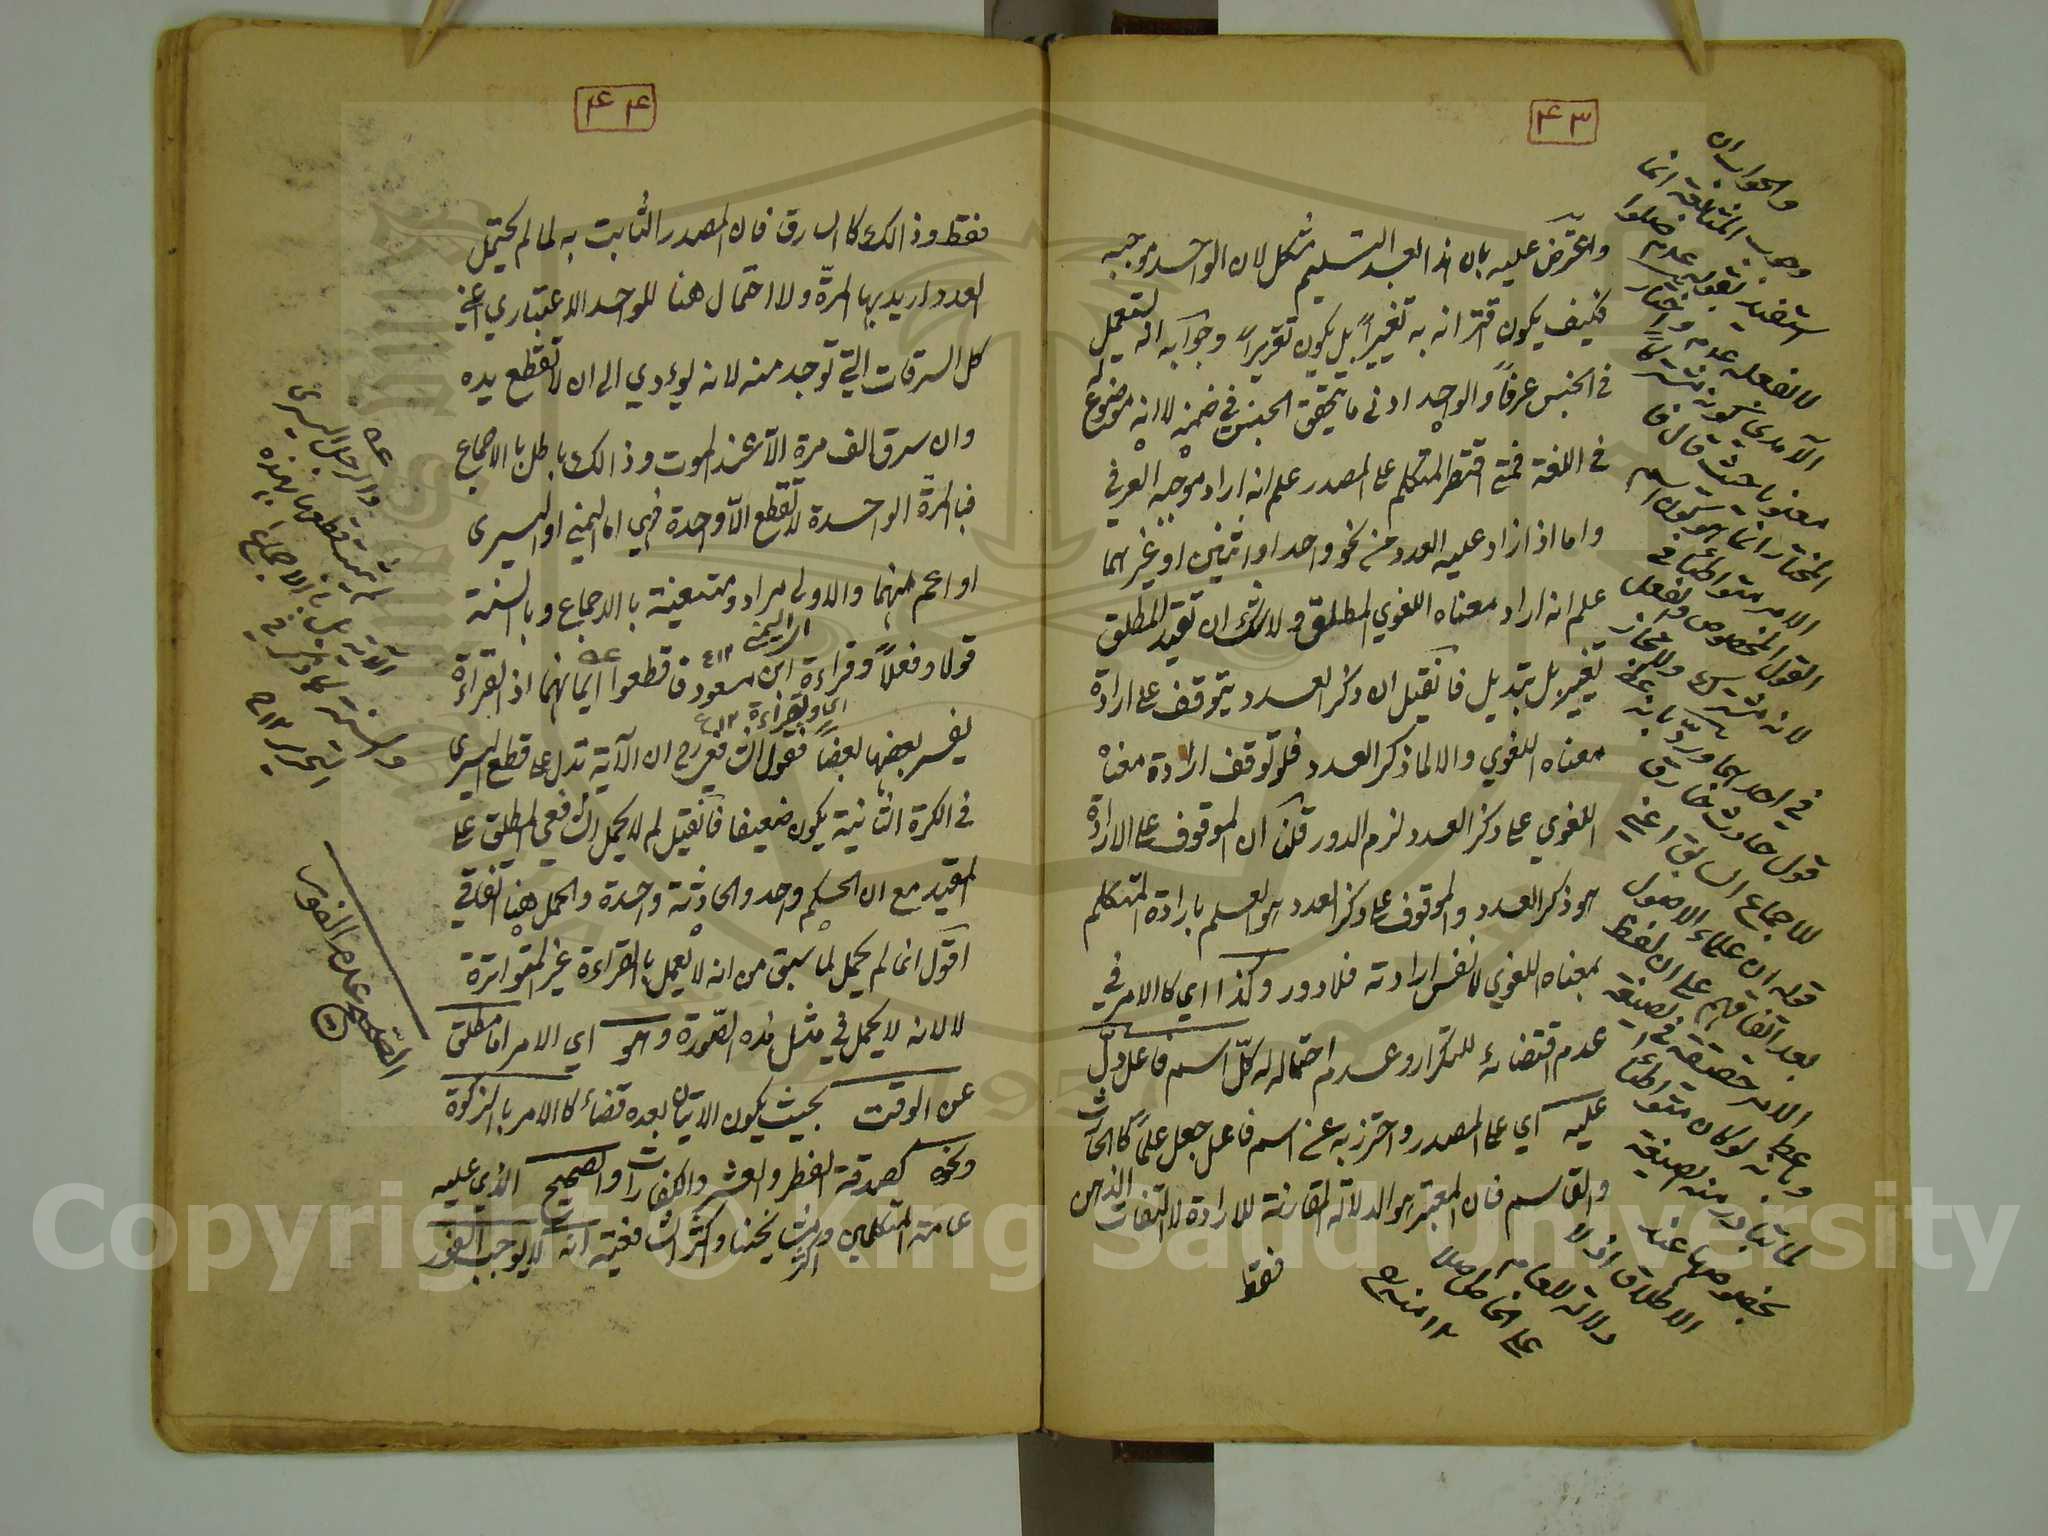 ٤٣
واعترض عليه بان هذا بعد التسليم مشكل لان الواحد موجبه
فكيف يكون اقترانه به تغييراً بل يكون تقريراً وجوابه انه يستعمل
في الجنس عرفاً والواحد ادنى ما يتحقق الجنس في ضمنه لا انه موضوع له
في اللغة فمتى اقتصر المتكلم على المصدر علم انه اراد موجبه العرفي
واما اذا زاد عليه العدد من نحو واحد او اثنين او غيرهما
علم انه اراد معناه اللغوي المطلق ولا شك ان تقييد المطلق
تغيير بل تبديل فان قيل ان ذكر العدد يتوقف على ارادة
معناه اللغوي والا لما ذكر العدد فلو توقف ارادة معناه
اللغوي على ذكر العدد لزم الدور قلنا ان الموقوف على الارادة
هو ذكر العدد والموقوف على ذكر العدد هو العلم بارادة المتكلم
بمعناه اللغوي لا نفس ارادته فلا دور وكذا اي كالامر في
عدم اقتضائه للتكرار وعدم احتماله له كلّ اسم فاعل دلّ
عليه اي على المصدر واحترز به عن اسم فاعل جعل علماً كالحارث
والقاسم فان المعتبر هو الدلالة المقارنة للارادة لا التفات الذهن
فقط
والجواب ان
وجوب المتابعة انما
استفيد بقوله عدم صلوا
لا بفعله عدم واختار
الآمدي كونه مشتركاً
معنويا حيث قال فا
المختار انما هو كون اسم
الامر متواطئا في
القول المخصوص والفعل
لانه مشترك والمجاز
في احدهما وردّ بانه
قول حادث خارق
للاجماع السابق اعني
قوله ان علماء الاصول
بعد اتفاقهم على ان لفظ
الامر حقيقة في الصيغة
وبانه لو كان متواطئا
لما تبادر منه الصيغة
بخصوصها عند
الاطلاق اذ لا
دلالة للعام
على الخاص اصلا
١٢ منه
٤٤
فقط وذالك كالسارق فان المصدر الثابت به لما لم يحتمل
العدد اريد بها المرّة ولا احتمال هنا للواحد الاعتباري اعني
كل السرقات التي توجد منه لانه يؤدي الى ان لا تقطع يده
وان سرق الف مرة الا عند الموت وذالك باطل بالاجماع
فبالمرّة الواحدة لا تقطع الّا واحدة فهي اما اليمنى او اليسرى
او اعم منهما والاولى مراد ومتعينة بالاجماع وبالسنة
قولا وفعلاً وقراءة ابن مسعود فاقطعوا ايمانهما اذ القراءة
يفسر بعضها بعضاً فقول الشافعي رح ان الآية تدل على قطع اليسرى
في الكرة الثانية يكون ضعيفا فان قيل لم لا يحمل الشافعي المطلق على
المقيد مع ان الحكم واحد والحادثة واحدة والحمل هنا اتفاقي
اقول انما لم يحمل لما سبق من انه لا يعمل بالقراءة غير المتواترة
لا لانه لا يحمل في مثل هذه الصورة وهو اي الامر اما مطلق
عن الوقت بحيث يكون الاتيان بعده قضاء كالامر بالزكوة
ونحوه كصدقة الفطر والعشر والكفارات والصحيح الذي عليه
عامة المتكلمين واكثر مشايخنا واكثر الشافعية انه لا يوجب الفور
والرجل اليسرى
لم يثبت قطعها بهذه
الآية بل بالاجماع
والسنة كما ذكر في
التحرير ١٢
الصحيح عدم الفور